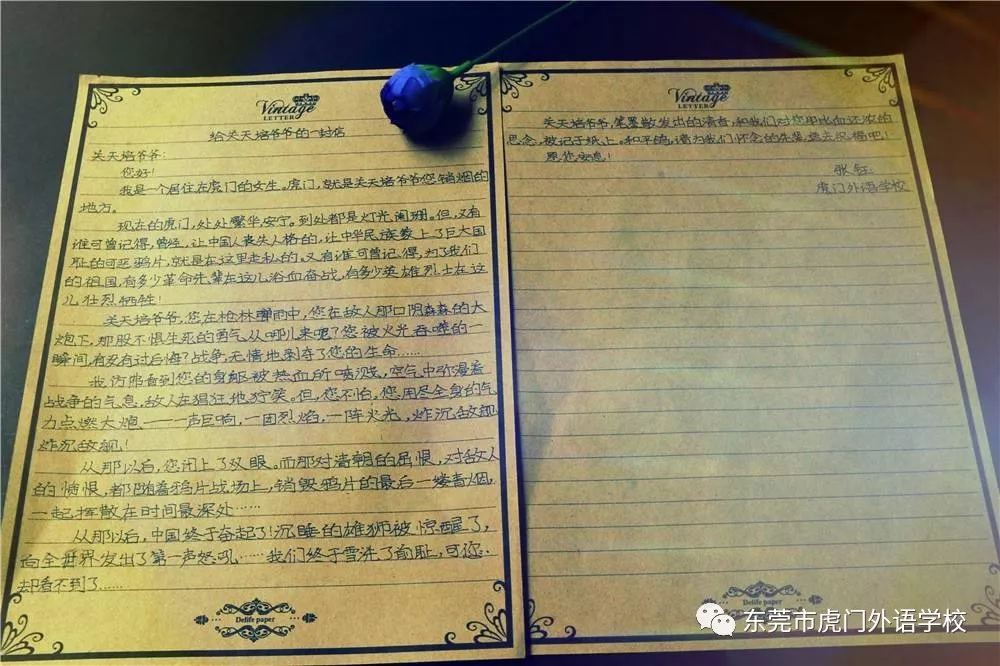 Vintage
LETTER
给关天培爷爷的一封信
关天培爷爷:
您好!
我是一个居住在虎门的女生。虎门,就是关天培爷爷您销烟的
地方。
现在的虎门,处处繁华,安宁。到处都是灯光阑珊。但,又有
谁可曾记得,曾经,让中国人丧失人格的,让中华民族蒙上了巨大国
耻的可恶鸦片,就是在这里走私的。又有谁可曾记得,为了我们
的祖国,有多少革命先辈在这儿浴血奋战,有多少英雄烈士在这
儿壮烈牺牲!
关天培爷爷,您在枪林弹雨中,您在敌人那口阴森森的大
炮下,那股不惧生死的勇气从哪儿来呢?您被火光吞噬的一
瞬间,有没有过后悔?战争,无情地剥夺了您的生命……
我仿弗看到您的身躯被热血所喷溅,空气中弥漫着
战争的气息,敌人在猖狂地狞笑。但,您不怕,您用尽全身的气
力点燃大炮,一一声巨响,一团烈焰,一阵火光,炸沉敌舰
炸沉敌舰!
从那以后,您闭上了双眼。而那对清朝的屈恨,对敌人
的愤恨,都随着鸦片战场上,销毁鸦片的最后一缕青烟,
一起挥散在时间最深处……
从那以后,中国终于奋起了!沉睡的雄狮被惊醒了,
向全世界发出了第一声怒吼……我们终于雪洗了前耻,可您,
却看不到了……
Delife paper
Vintage
LETTER
关天培爷爷,笔墨散发出的清香,和我们对您那比血还浓的
思念,被记于纸上。和平鸽,请为我们怀念的先辈,
愿您安息!
张
虎门外语学校
Delife paper
东莞市虎门外语学校